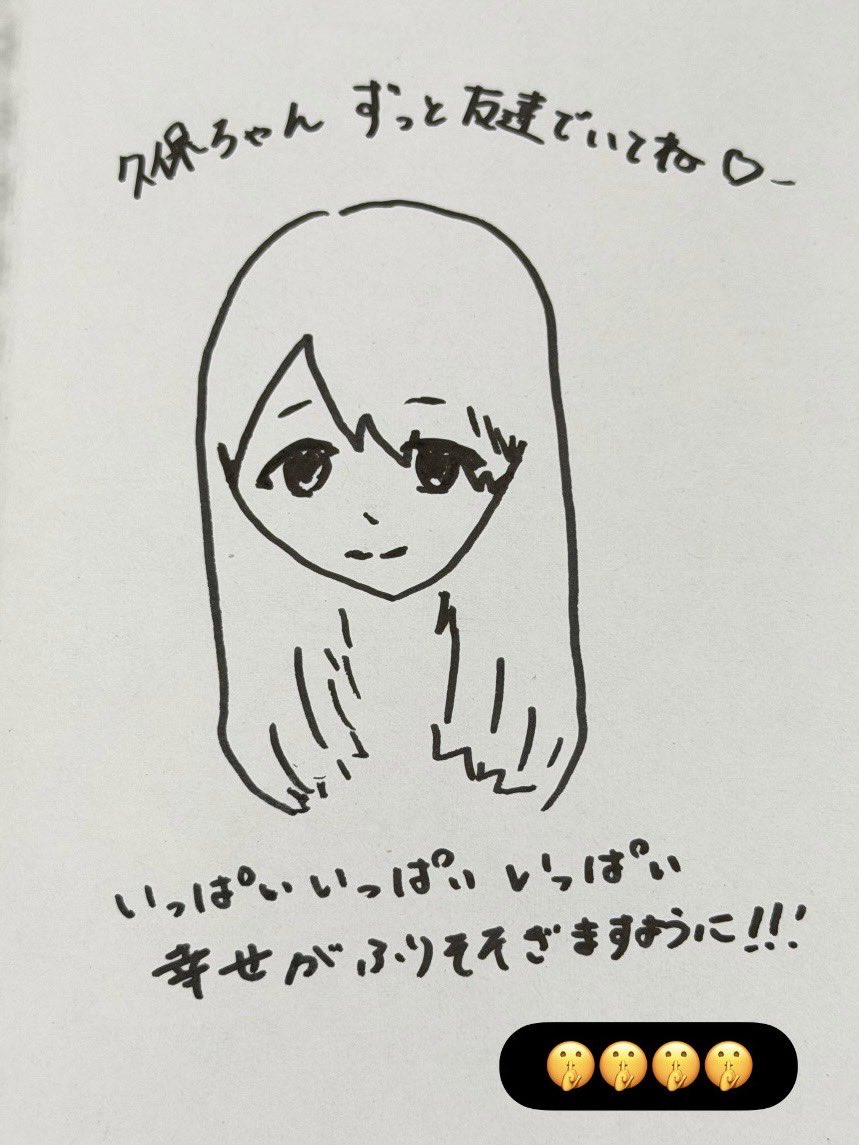 久保ちゃん ずっと友達でいてね♡
いっぱいいっぱいいっぱい
幸せがふりそそぎますように!!!